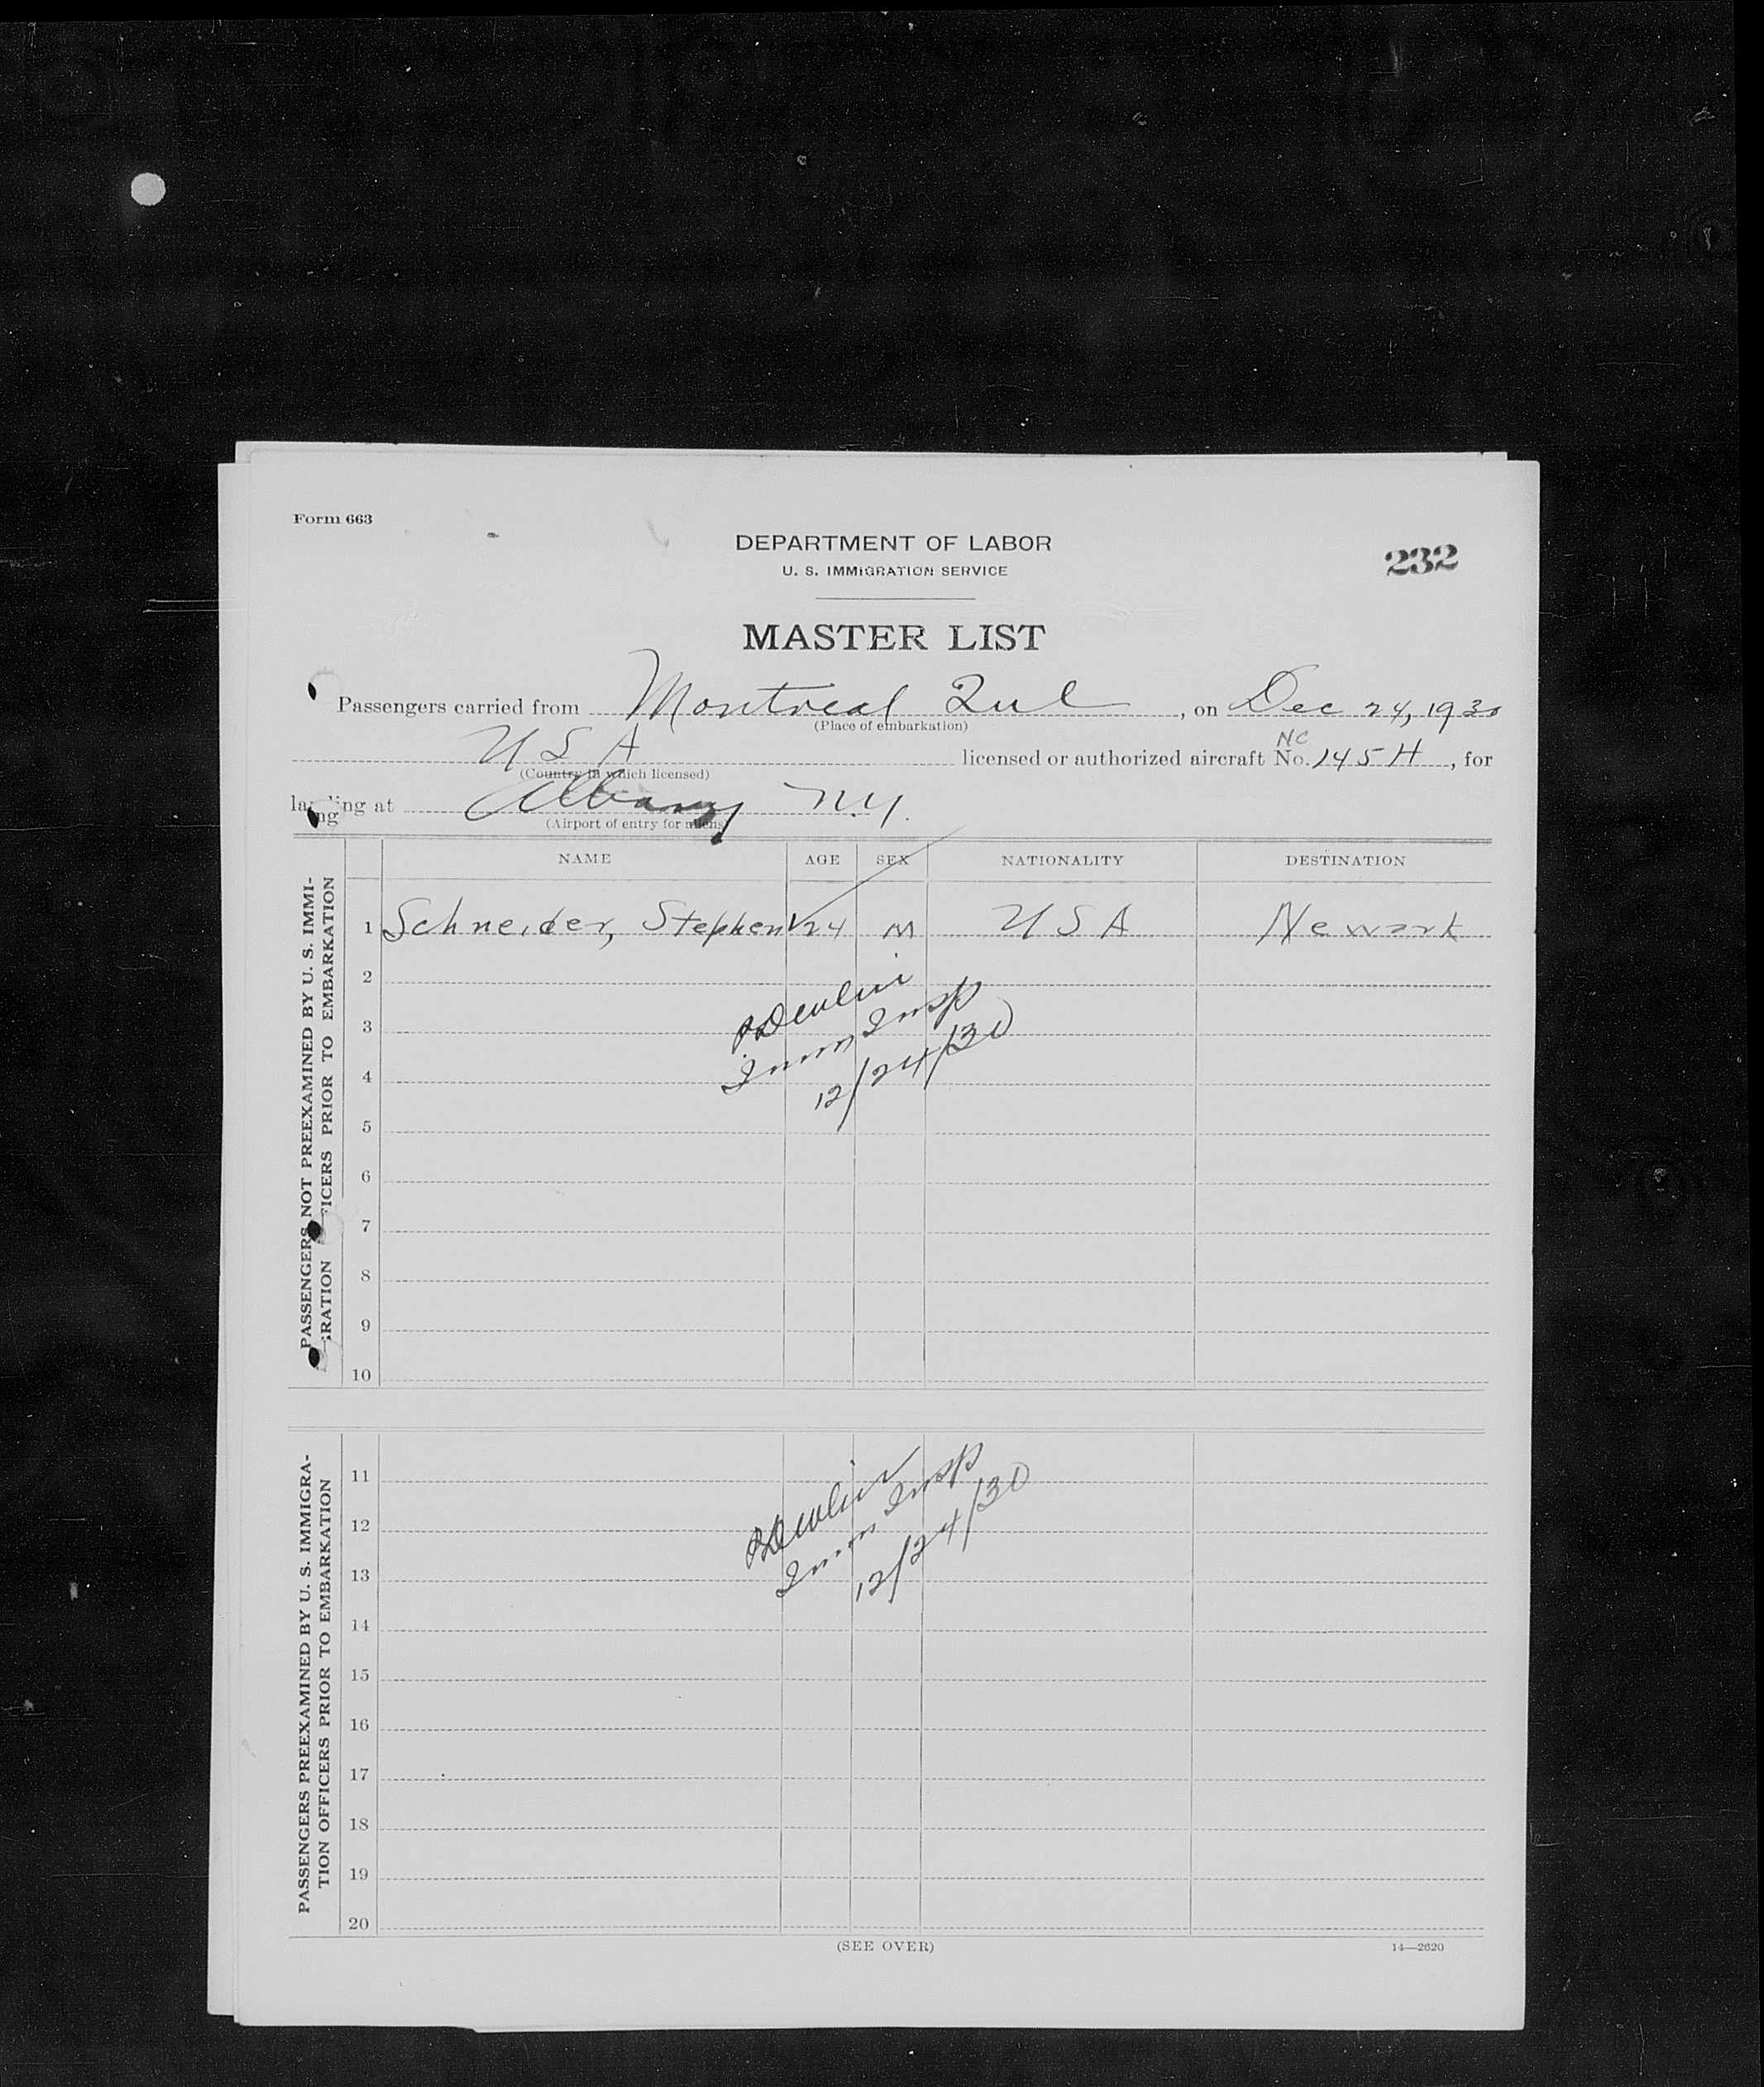 Form 663
DEPARTMENT OF LABOR
U. S. IMMIGRATION SERVICE
232
MASTER LIST
Passengers carried from Montreal Que, on Dec 24, 1930
(Place of embarkation)
U S A licensed or authorized aircraft No. NC 145H, for
(Country in which licensed)
landing at Albany N.Y.
ng
(Airport of entry for aliens)
NAME AGE SEX NATIONALITY DESTINATION
PASSENGERS NOT PREEXAMINED BY U. S. IMMI-
GRATION OFFICERS PRIOR TO EMBARKATION
1 Schneider, Stephen 24 M U S A Newark
2
3
4
5
6
7
8
9
10
Devlin
Imm Insp
12/24/30
PASSENGERS PREEXAMINED BY U. S. IMMIGRA-
TION OFFICERS PRIOR TO EMBARKATION
11
12
13
14
15
16
17
18
19
20
Devlin
Imm Insp
12/24/30
(SEE OVER)
14—2620